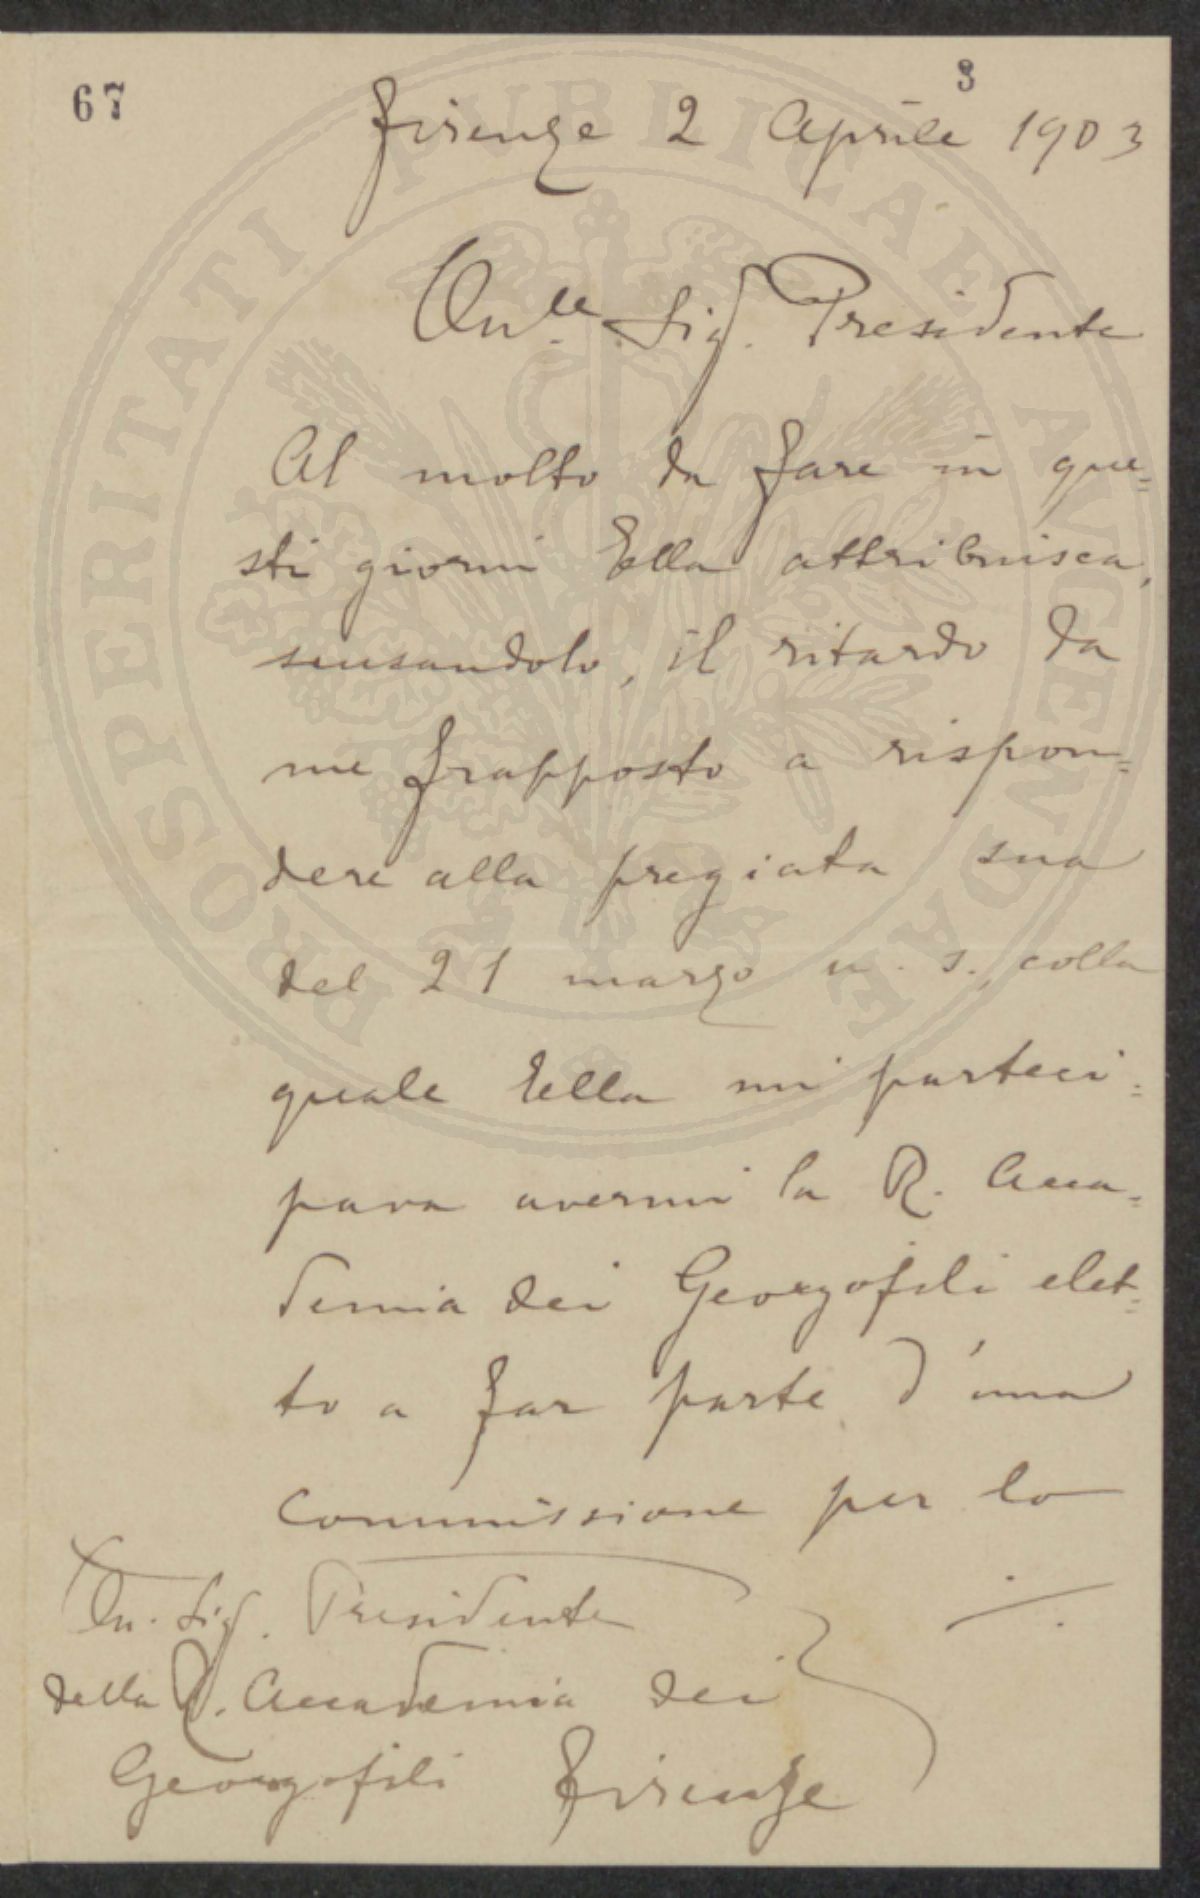 67
3
Firenze 2 Aprile 1903
On.le Sig. Presidente
Al molto da fare in que=
sti giorni Ella attribuisca,
scusandolo, il ritardo da
me frapposto a rispon=
dere alla pregiata sua
del 21 marzo u. s., colla
quale Ella mi parteci=
pava avermi la R. Acca=
demia dei Georgofili elet=
to a far parte d'una
Commissione per lo
On. Sig. Presidente
della R. Accademia dei
Georgofili Firenze
PROSPERITATI PUBLICAE AUGENDAE